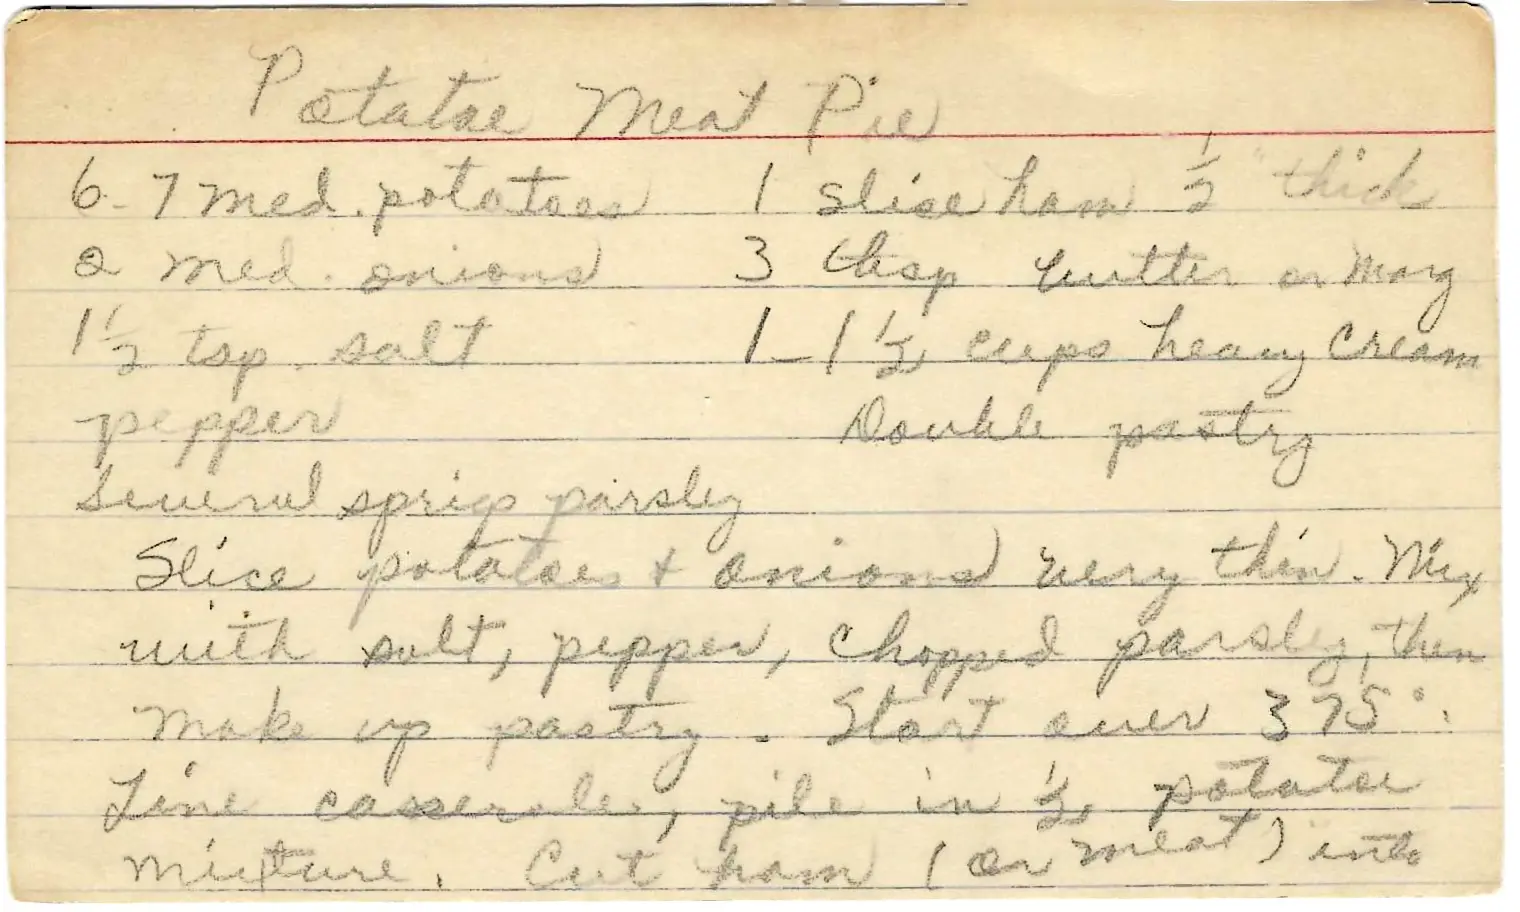 Potatoe Meat Pie
6-7 med. potatoes 1 slice ham 1/2" thick
2 med. onions 3 tbsp butter or marg
1 1/2 tsp. salt 1-1 1/2 cups heavy cream
pepper Double pastry
Several sprigs parsley
Slice potatoes + onions very thin. Mix
with salt, pepper, chopped parsley, then
make up pastry. Start oven 375°.
Line casserole, pile in 1/2 potatoe
mixture. Cut ham (or meat) into